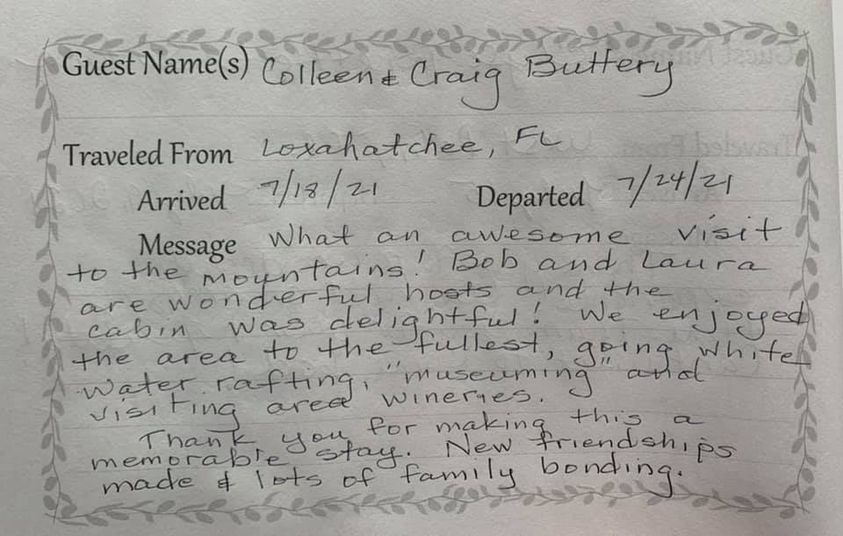 Guest Name(s) Colleen & Craig Buttery
Traveled From Loxahatchee, FL
Arrived 7/18/21 Departed 7/24/21
Message What an awesome visit
to the mountains! Bob and Laura
are wonderful hosts and the
cabin was delightful! We enjoyed
the area to the fullest, going white
water rafting, "museuming" and
visiting area wineries.
Thank you for making this a
memorable stay. New friendships
made & lots of family bonding.